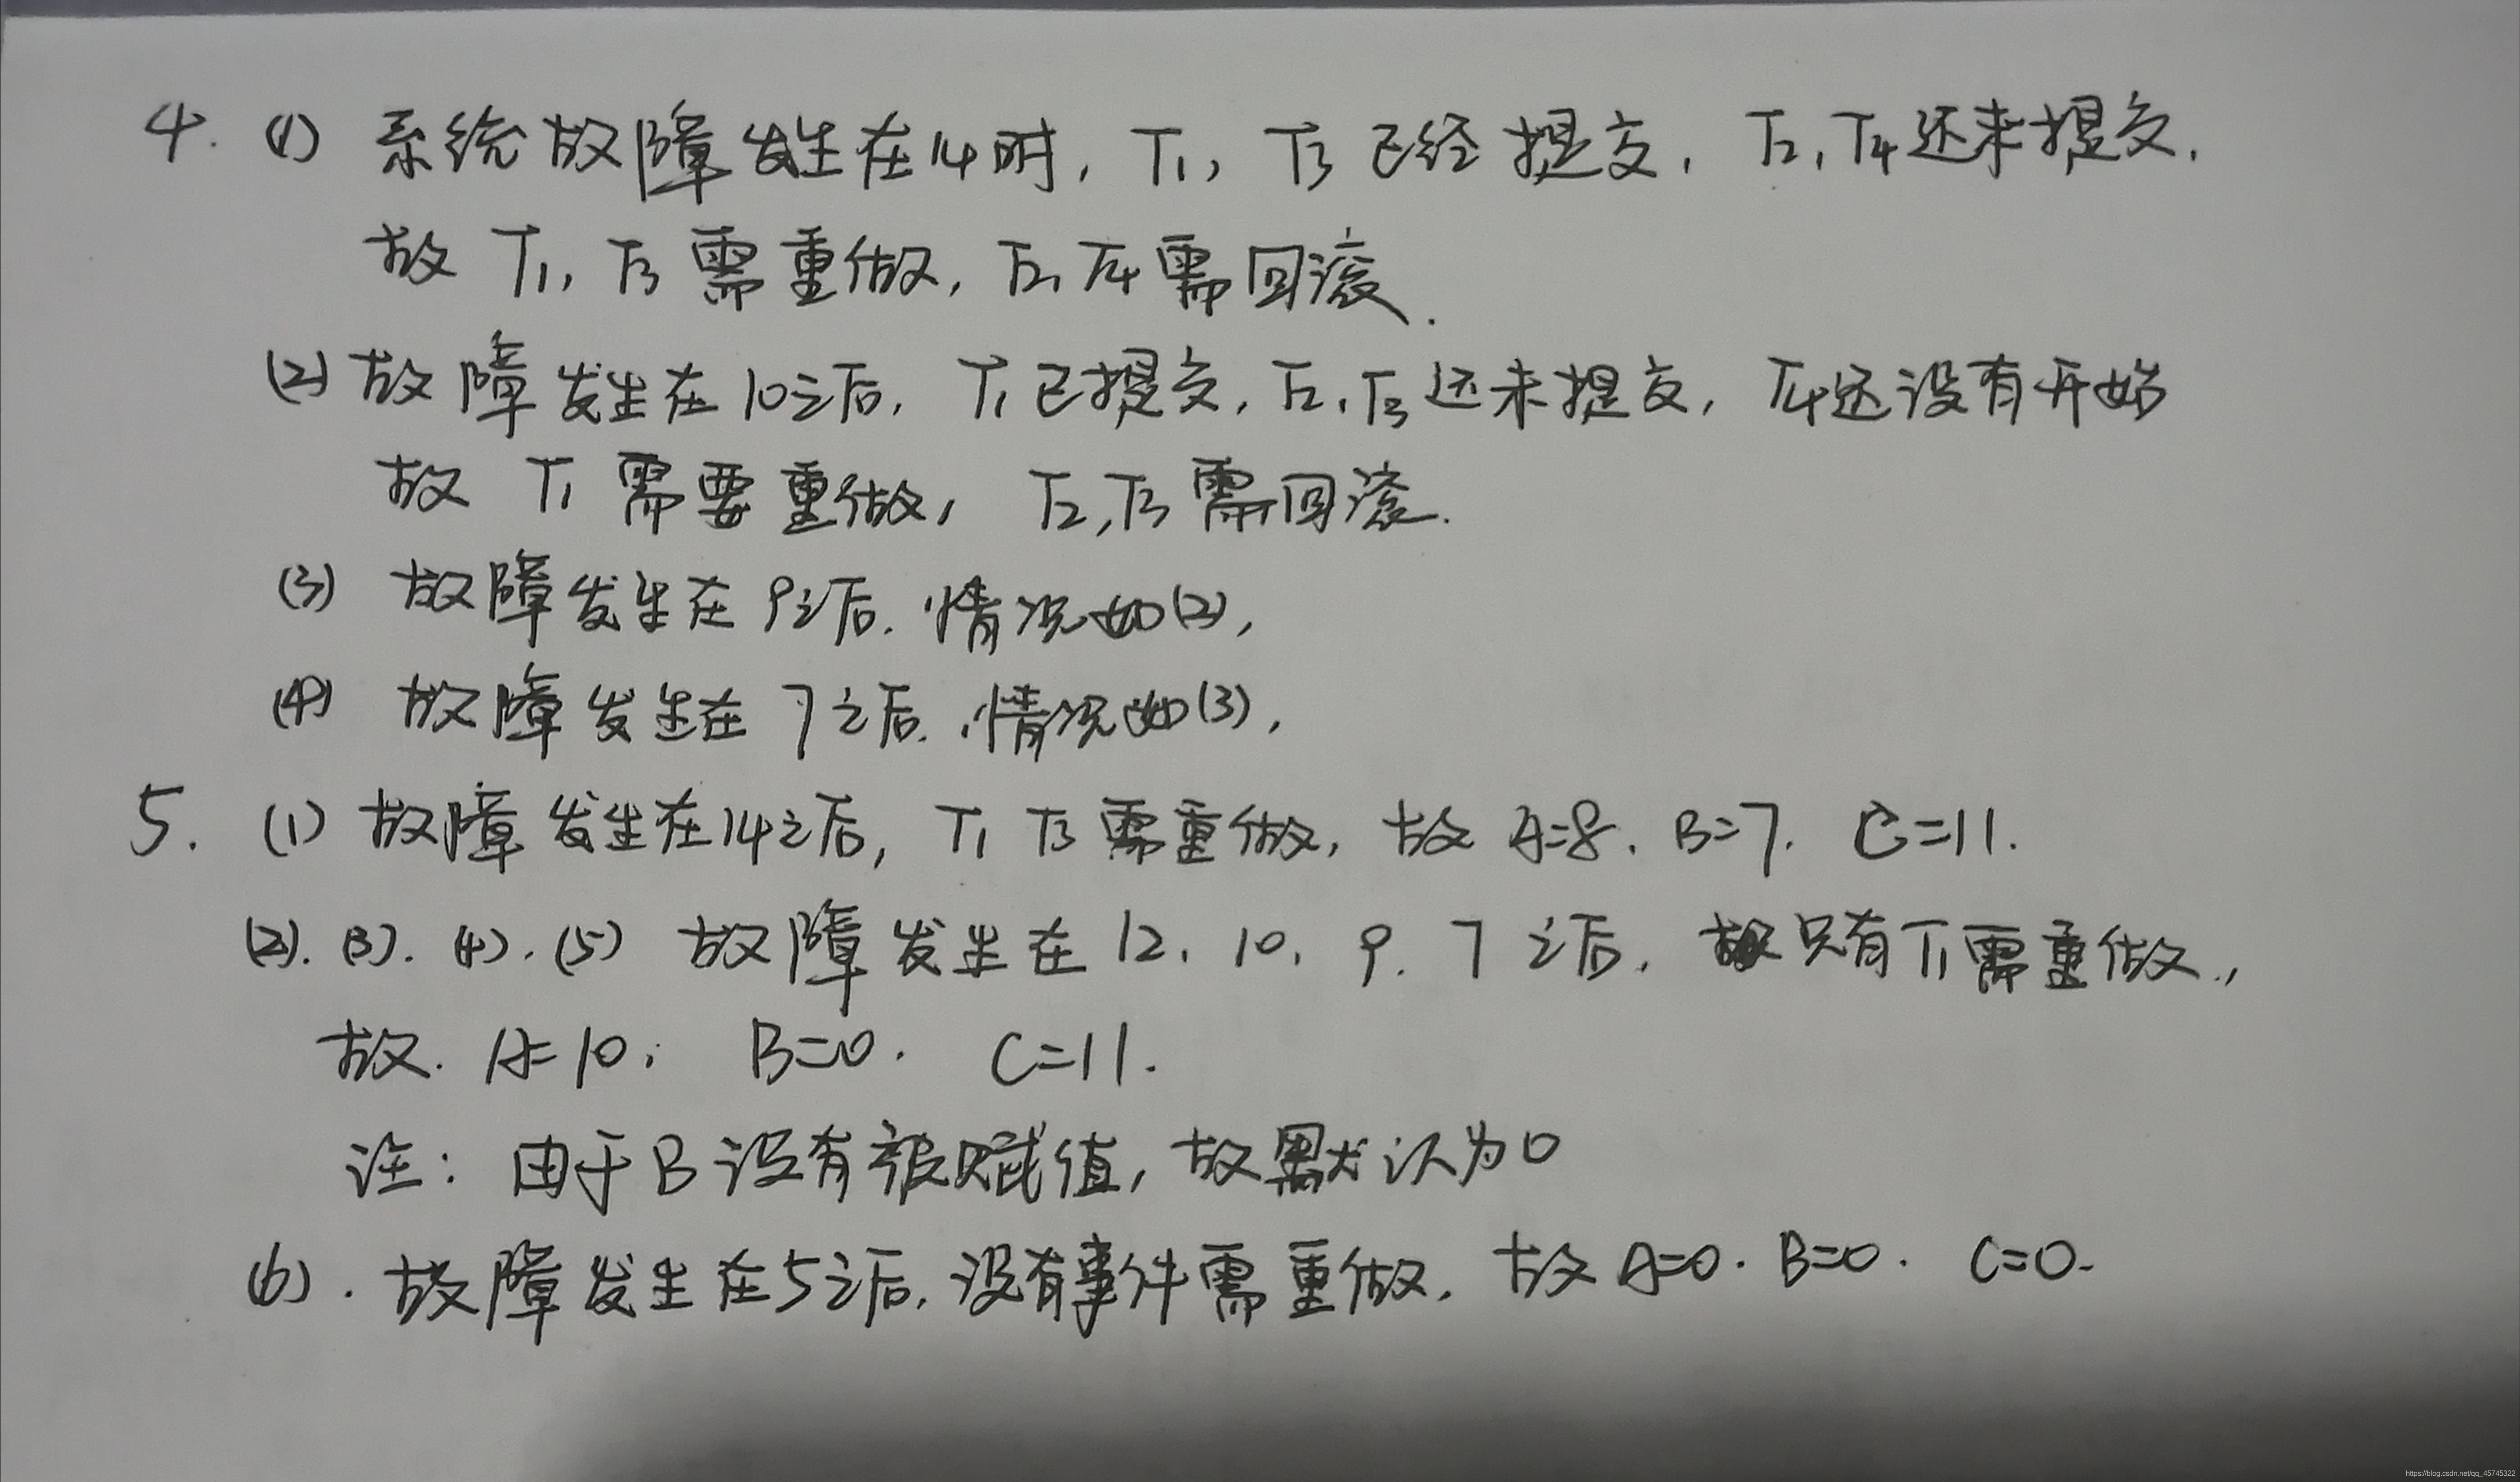 4. (1) 系统故障发生在14时, T1, T3 已经提交, T2, T4还未提交.
故 T1, T3 需重做, T2, T4 需回滚.
(2) 故障发生在10之后, T1已提交, T2, T3还未提交, T4还没有开始
故 T1 需要重做, T2, T3 需回滚.
(3) 故障发生在9之后. 情况如(2),
(4) 故障发生在7之后. 情况如(3),
5. (1) 故障发生在14之后, T1 T3 需重做, 故 A=8. B=7. C=11.
(2). (3). (4). (5) 故障发生在12. 10. 9. 7之后, 只有T1需重做.,
故. A=10. B=0. C=11.
注: 由于B没有被赋值, 故默认为0
(6). 故障发生在5之后, 没有事件需重做. 故A=0. B=0. C=0.
https://blog.csdn.net/qq_45745322